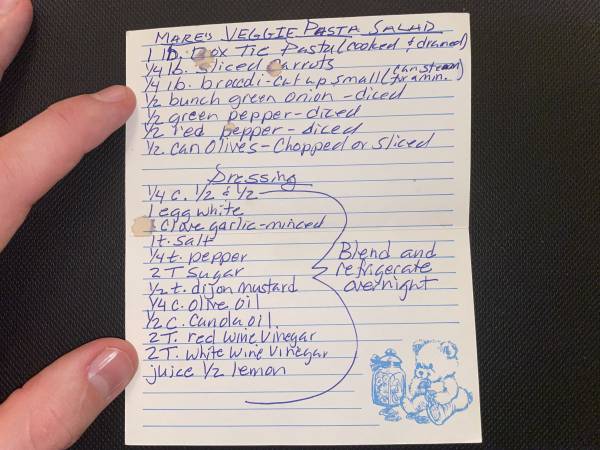 MARE'S VEGGIE PASTA SALAD
1 lb. Box Tie Pasta (cooked & drained)
1/4 lb. sliced carrots
1/4 lb. brocoli - cut up small (can steam for a min.)
1/2 bunch green onion - diced
1/2 green pepper - diced
1/2 red pepper - diced
1/2 can Olives - Chopped or sliced
Dressing
1/4 c. 1/2 & 1/2
1 egg white
1 clove garlic - minced
1 t. salt
1/4 t. pepper
2 T Sugar
1/2 t. dijon mustard
1/4 c. olive oil
1/2 c. Canola oil
2 T. red wine vinegar
2 T. white wine vinegar
juice 1/2 lemon
Blend and
refrigerate
overnight